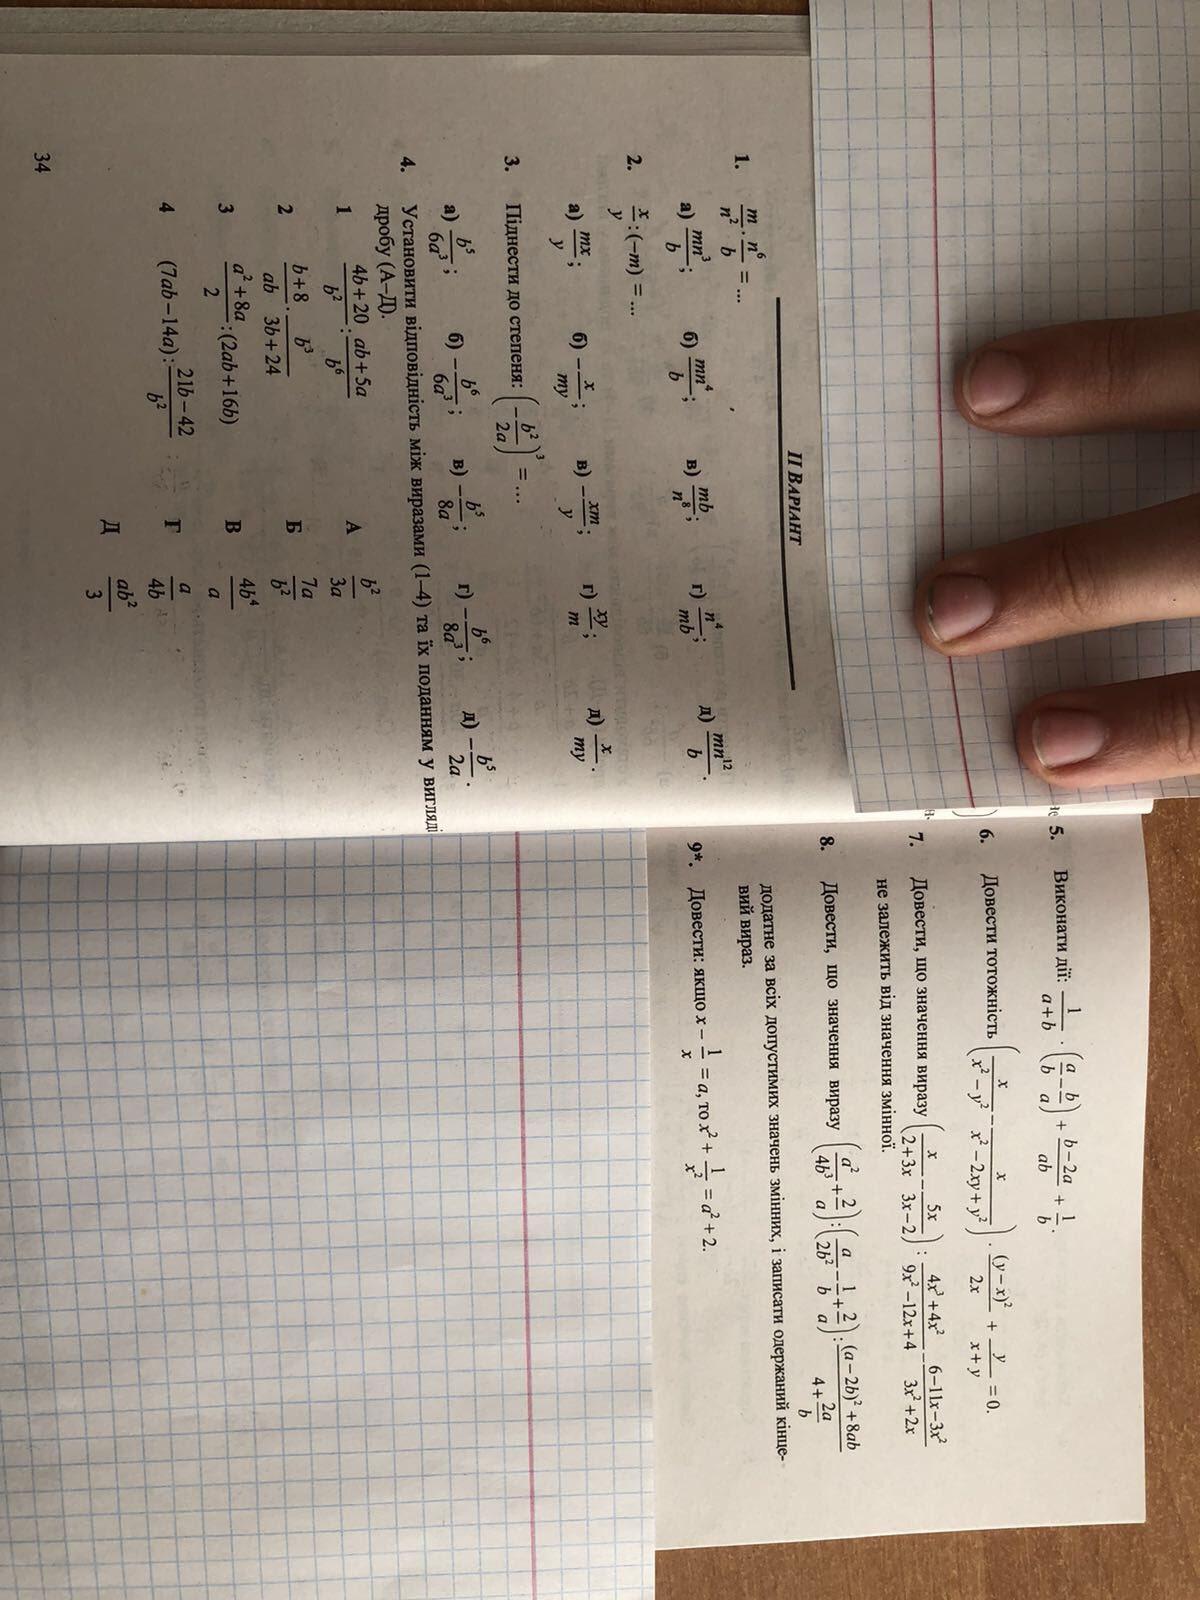 II ВАРІАНТ
1. m/n² · n⁶/b = ...
а) mn³/b; б) mn⁴/b; в) mb/n⁸; г) n⁴/mb; д) mn¹²/b.
2. x/y : (−m) = ...
а) mx/y; б) −x/my; в) −xm/y; г) xy/m; д) x/my.
3. Піднести до степеня: (−b²/2a)³ = ...
а) b⁵/6a³; б) −b⁶/6a³; в) −b⁵/8a; г) −b⁶/8a³; д) −b⁵/2a.
4. Установити відповідність між виразами (1–4) та їх поданням у вигляді
дробу (А–Д).
1 (4b+20)/b² : (ab+5a)/b⁶ А b²/3a
2 (b+8)/ab · b³/(3b+24) Б 7a/b²
3 (a²+8a)/2 : (2ab+16b) В 4b⁴/a
4 (7ab−14a) : (21b−42)/b² Г a/4b
Д ab²/3
34
5. Виконати дії: 1/(a+b) · (a/b − b/a) + (b−2a)/ab + 1/b.
6. Довести тотожність (x/(x²−y²) − x/(x²−2xy+y²)) · (y−x)²/2x + y/(x+y) = 0.
7. Довести, що значення виразу (x/(2+3x) − 5x/(3x−2)) : (4x³+4x²)/(9x²−12x+4) − (6−11x−3x²)/(3x²+2x)
не залежить від значення змінної.
8. Довести, що значення виразу (a²/4b³ + 2/a) : (a/2b² − 1/b + 2/a) : ((a−2b)²+8ab)/(4+2a/b)
додатне за всіх допустимих значень змінних, і записати одержаний кінце-
вий вираз.
9*. Довести: якщо x − 1/x = a, то x² + 1/x² = a² + 2.